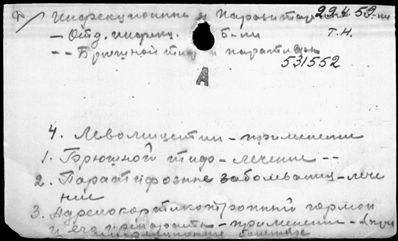 Инфекционные и Паразитарные б-ни 22.4.53
— Отд. инфекц. б-ни т.н.
-- Брюшной тиф и паратифы
531552
А
4. Левомицетин - применение
1. Брюшной тиф - лечение --
2. Паратифозные заболевания - лече
ние
3. Адренокортикотропный гормон
и его препараты - применение -
инфекционные